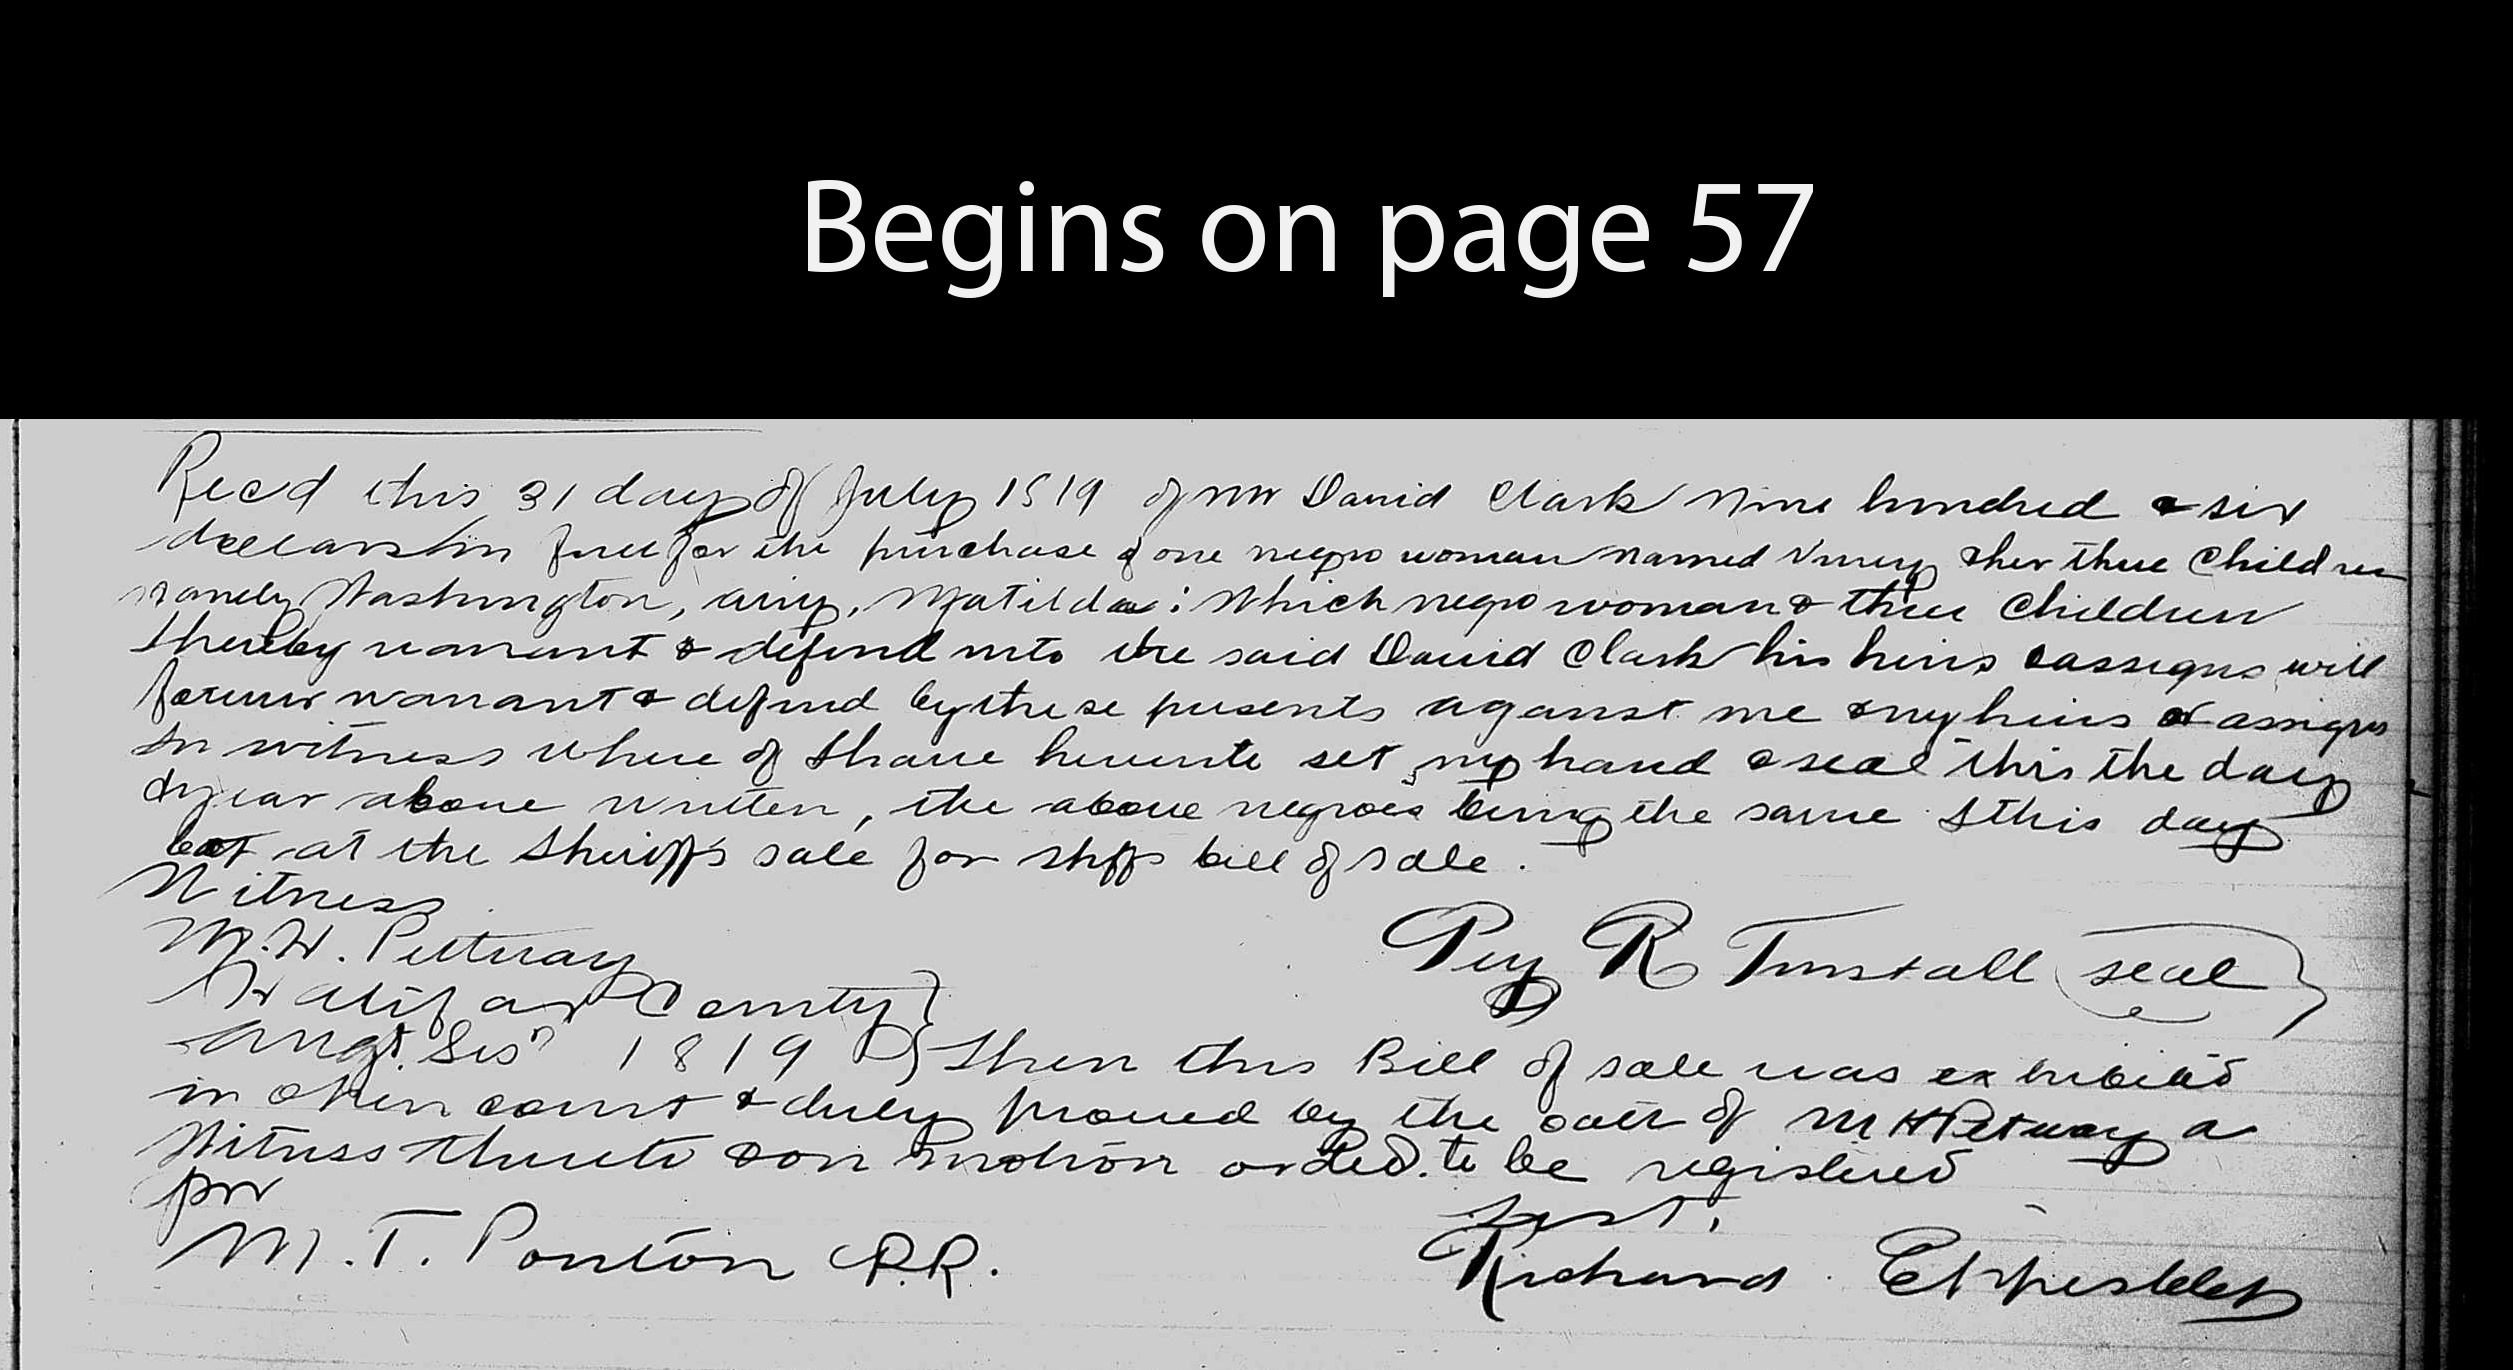 Begins on page 57
Recd this 31 day of July 1819 of Mr David Clark Nine hundred & six
dollars in full for the purchase of one negro woman named Viney & her three Children
namely Washington, airy, Matilda: Which negro woman & three Children
I hereby warrant & defend unto the said David Clark his heirs & assigns will
forever warrant & defend by these presents against me & my heirs or assigns
In witness where of I have hereunto set my hand & seal this the day
& year above written, the above negroes being the same I this day
bot at the Sheriff's sale for shffs bill of sale.
Witness
M. H. Pettway
Pey R Tunstall seal
Halifax County
Augt. Ses 1819 } Then this Bill of sale was exhibited
in open court & duly proved by the oath of M H Petway a
Witness thereto & on motion orded. to be registered
pr
Test.
M. T. Ponton P.R.
Richard Eppes clk